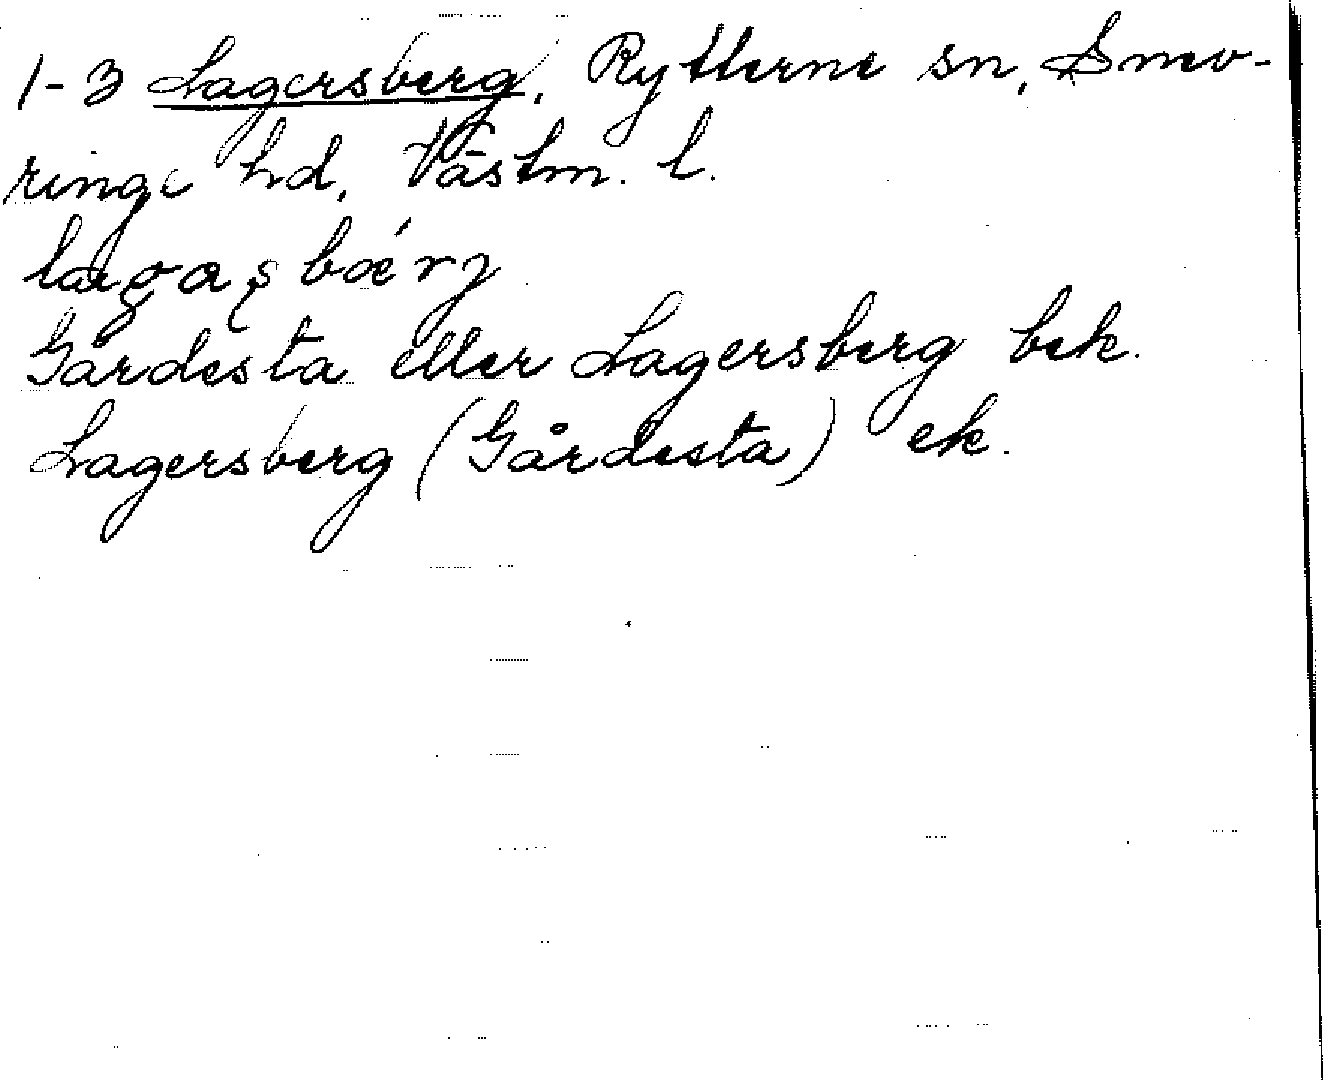 1-3 Lagersberg, Rytterne sn, Snev-
ringe hd, Västm. l.
Gårdesta eller Lagersberg bek.
Lagersberg (Gårdesta) ek.